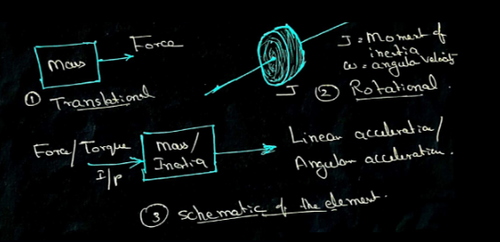 Mass
Force
① Translational
J = Moment of
inertia
ω = angular velocity
J
② Rotational.
Force/Torque
I/p
Mass/
Inertia
Linear acceleration/
Angular acceleration.
③ Schematic of the element.